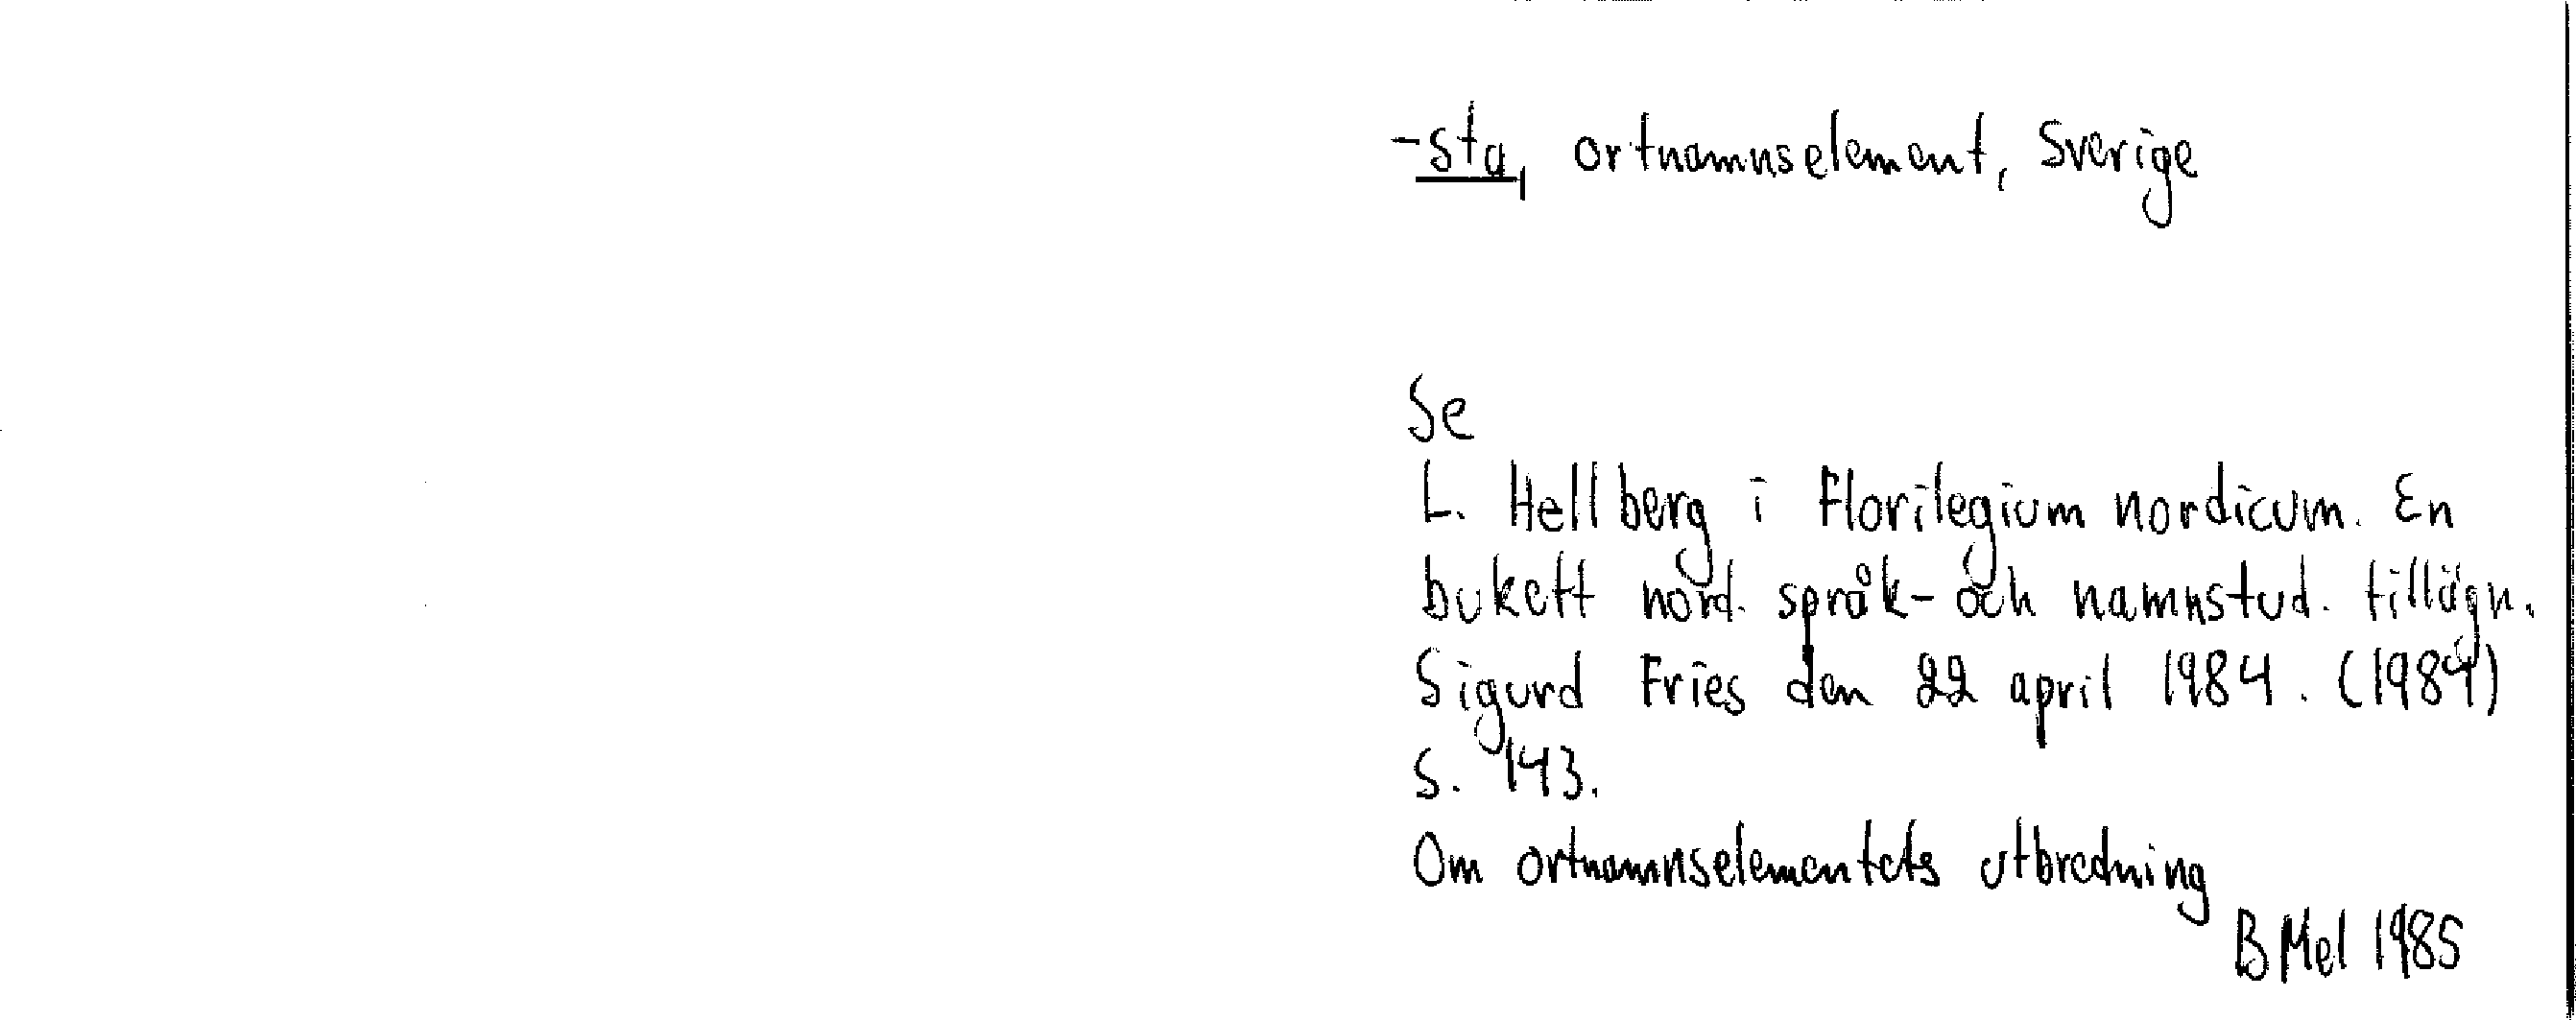 -sta, ortnamnselement, Sverige
Se
L. Hellberg i Florilegium nordicum. En
bukett nord. språk- och namnstud. tillägn.
Sigurd Fries den 22 april 1984. (1984)
S. 143.
Om ortnamnselementets utbredning
B Mel 1985